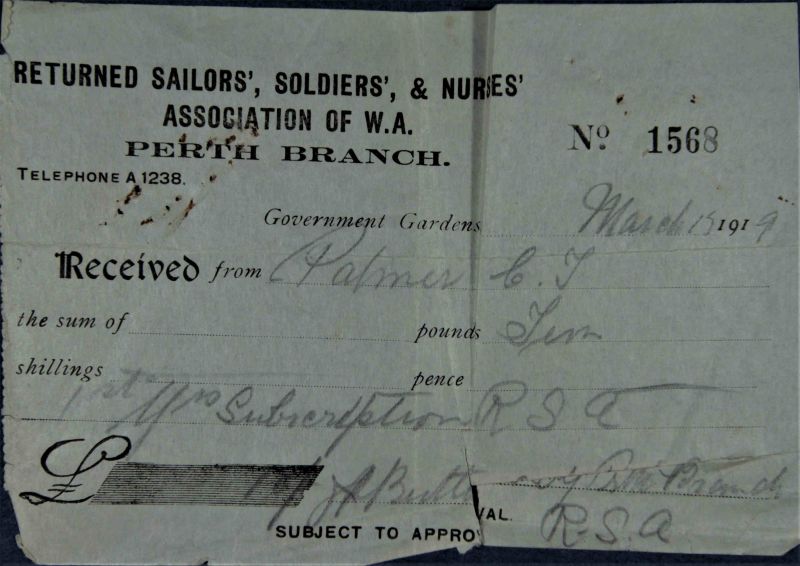 RETURNED SAILORS', SOLDIERS', & NURSES'
ASSOCIATION OF W.A.
PERTH BRANCH.
Nº 1568
TELEPHONE A 1238.
Government Gardens March 1919
Received from Palmer C. J
the sum of pounds Ten
shillings pence
1st Yrs Subscription R S A
£ 10/ Perth Branch
SUBJECT TO APPROVAL R.S.A